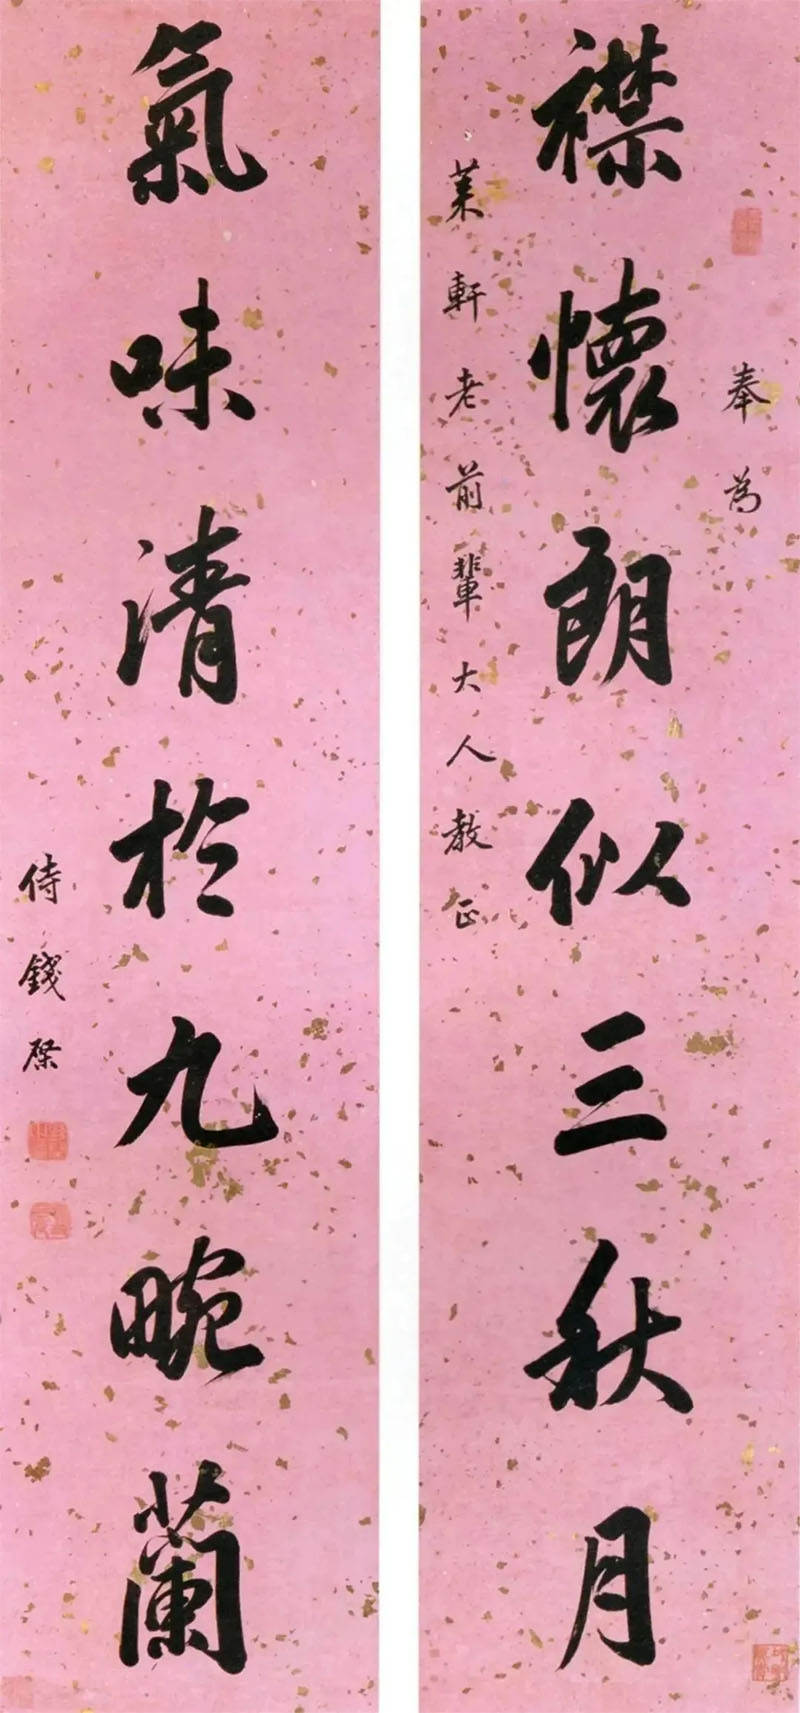 奉為
襟懷朗似三秋月
萊軒老前輩大人教正
氣味清於九畹蘭
侍錢棨